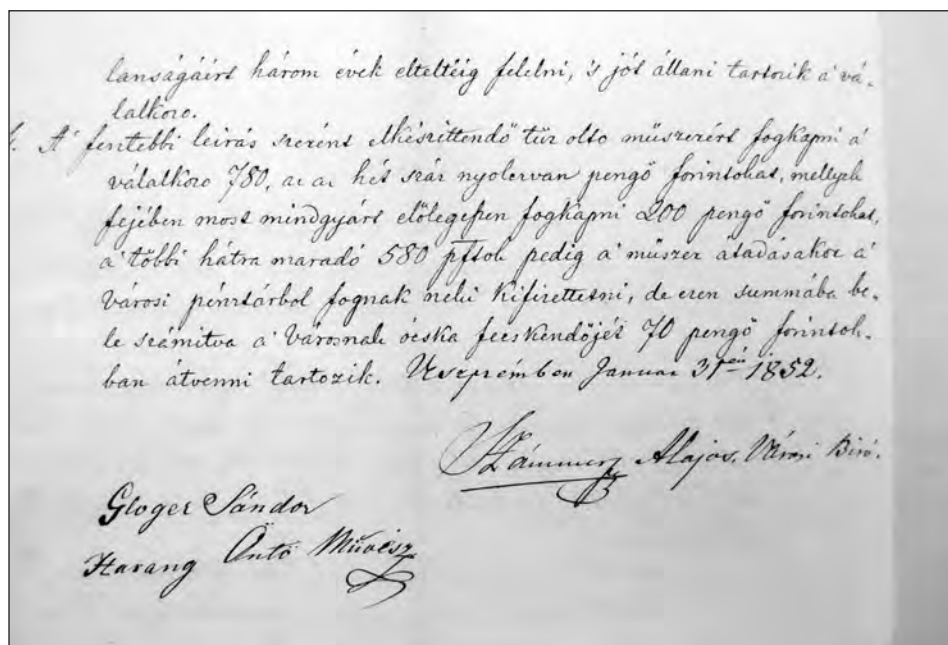 lanságáért három évek elteltéig felelni, 's jót állani tartozik a' vá-
lalkozo.
A' fentebbi leirás szerént elkészittendő tűz olto műszerért fogkapni a'
válalkozo 780, az az hét száz nyolczvan pengő forintokat, mellyek
fejében most mindgyárt előlegessen fogkapni 200 pengő forintokat,
a' többi hátra maradó 580 pftok pedig a' műszer átadásakor a'
városi pénztárbol fognak neki kifizettetni, de ezen summába be-
le számitva a' Városnak ócska fecskendőjét 70 pengő forintok-
ban átvenni tartozik. Veszprémben Januar 31én 1852.
Alajos. Városi Biró.
Gloger Sándor
Harang Öntő Művész